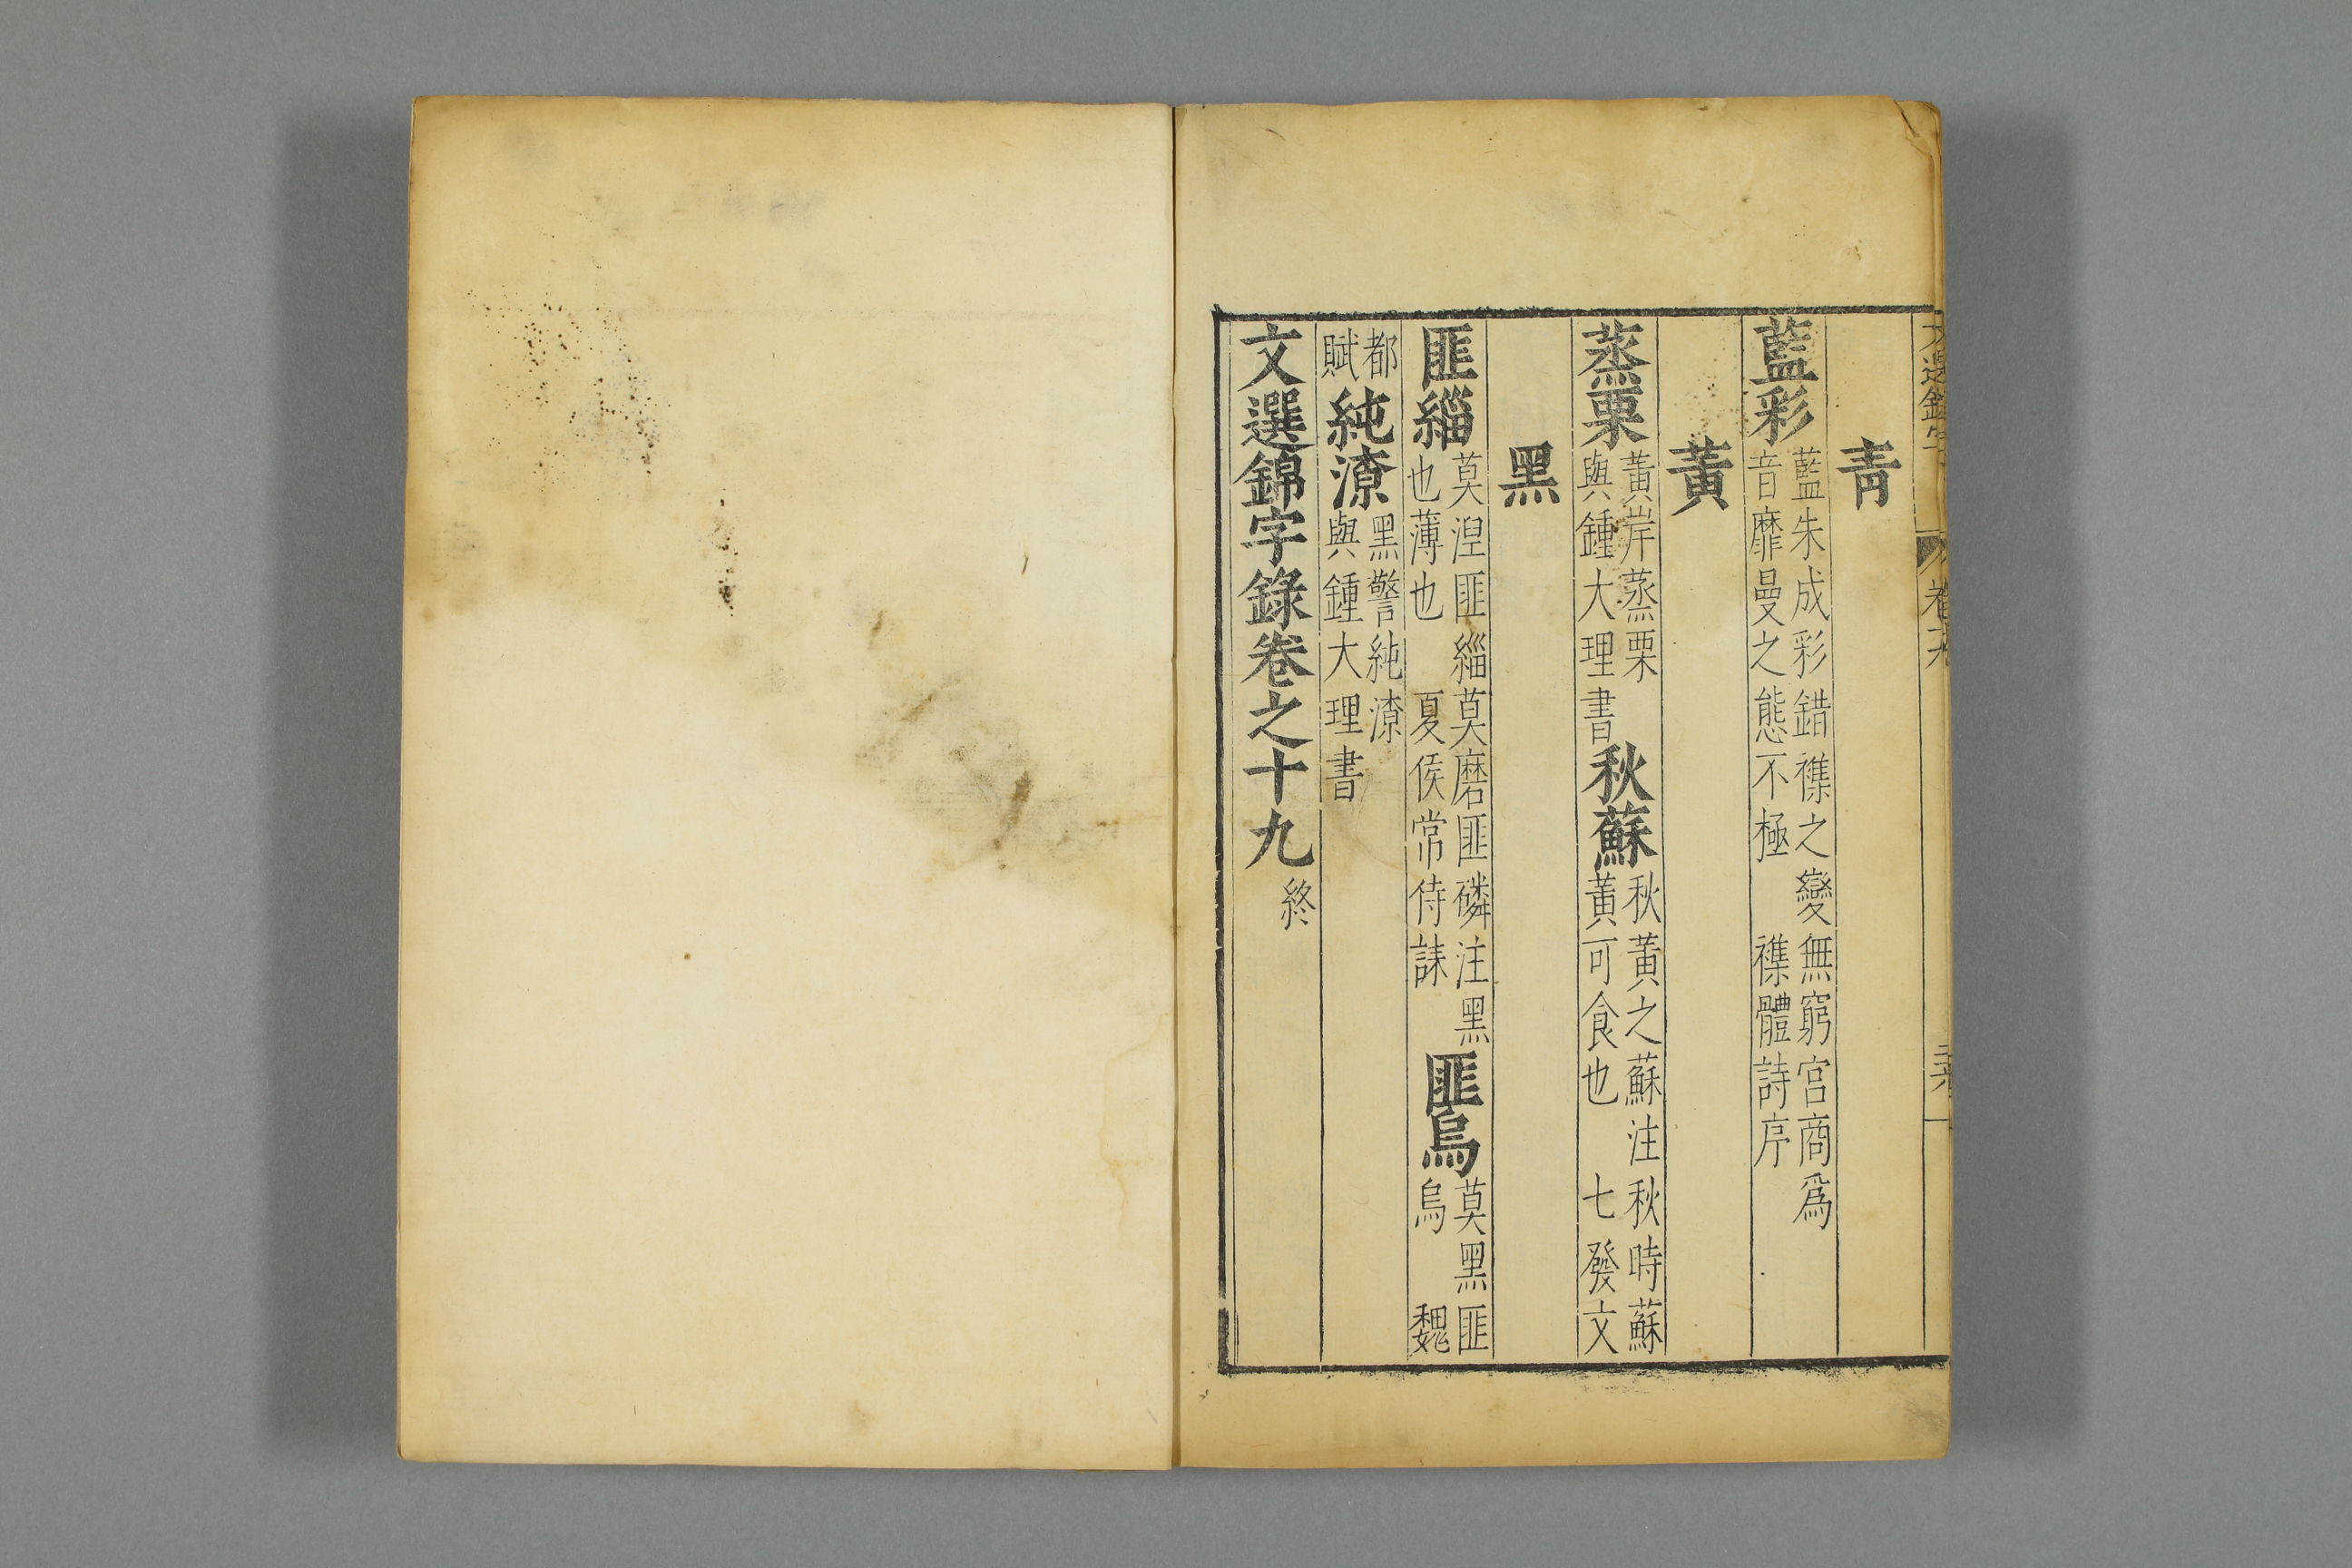 青
藍彩 藍朱成彩錯襍之變無窮宮商爲
音靡曼之態不極 襍體詩序
黃
蒸栗 黃岸蒸栗
與鍾大理書
秋蘇 秋黃之蘇注秋時蘇
黃可食也 七發文
黑
匪緇 莫湼匪緇莫磨匪磷注黑
也薄也 夏侯常侍誄
匪烏 莫黑匪
烏 魏
都
賦
純漆 黑譬純漆
與鍾大理書
文選錦字錄卷之十九 終